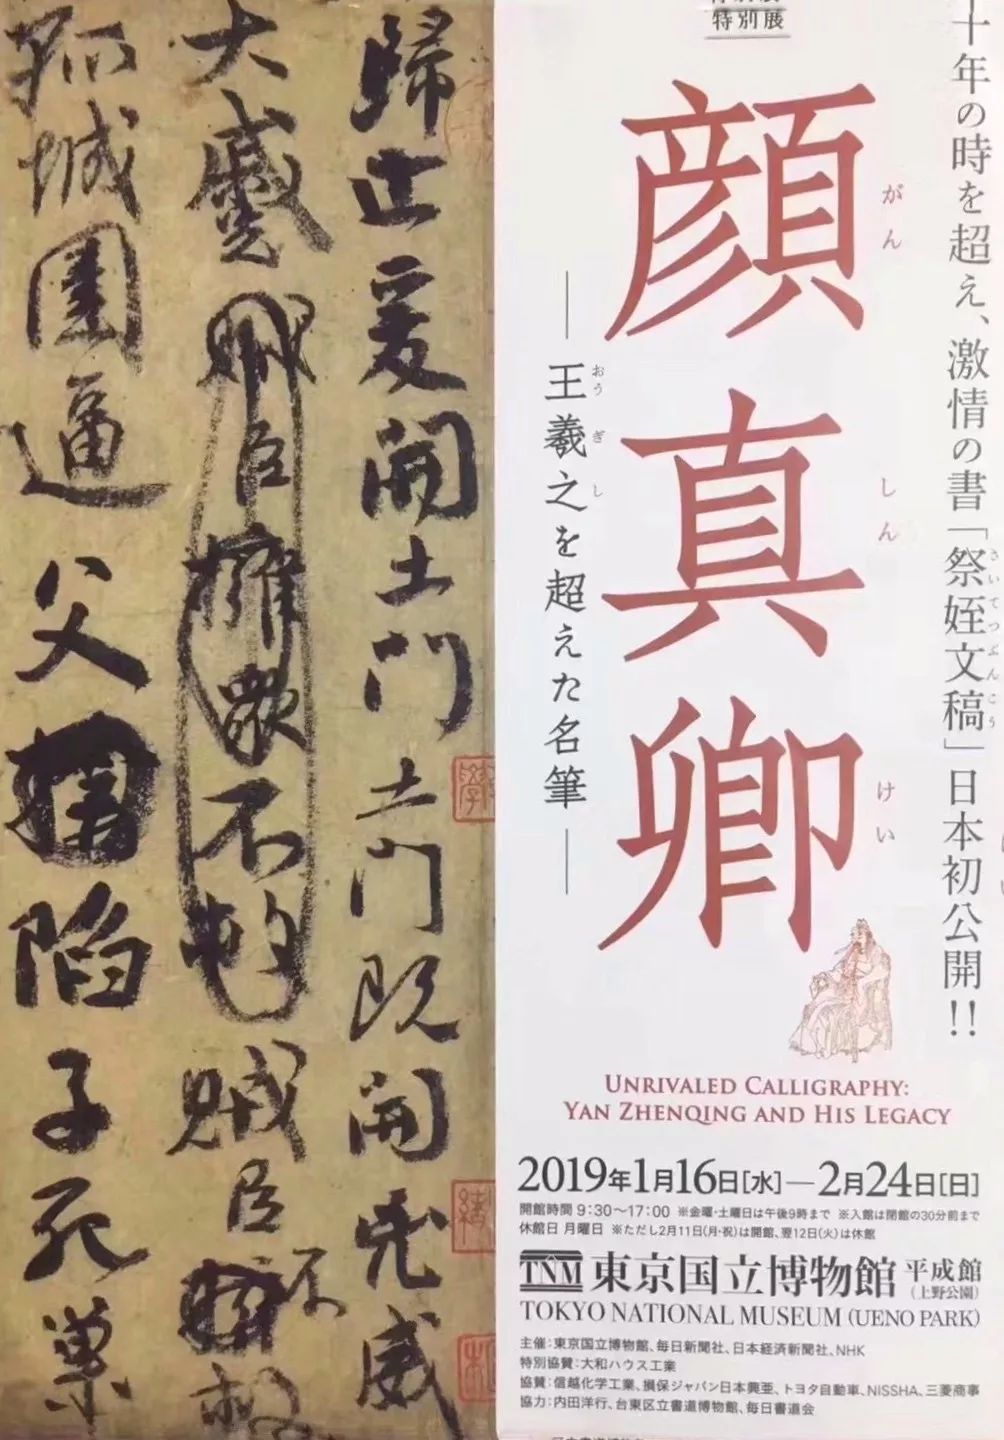 特別展
十年の時を超え、激情の書「祭姪文稿」日本初公開!!
さいてつぶんこう
顔真卿
がんしんけい
王羲之を超えた名筆
おうぎし
UNRIVALED CALLIGRAPHY:
YAN ZHENQING AND HIS LEGACY
2019年1月16日[水]—2月24日[日]
開館時間 9:30～17:00 ※金曜・土曜日は午後9時まで ※入館は閉館の30分前まで
休館日 月曜日 ※ただし2月11日(月・祝)は開館、翌12日(火)は休館
TNM 東京国立博物館 平成館
(上野公園)
TOKYO NATIONAL MUSEUM (UENO PARK)
主催：東京国立博物館、毎日新聞社、日本経済新聞社、NHK
特別協賛：大和ハウス工業
協賛：信越化学工業、損保ジャパン日本興亜、トヨタ自動車、NISSHA、三菱商事
協力：内田洋行、台東区立書道博物館、毎日書道会
歸止爰開土門土門既開凶威
大蹙賊臣擁衆不救賊臣不救
孤城圍逼父陷子死巢